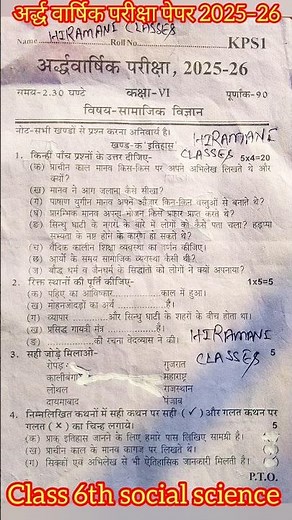 अर्द्ध वार्षिक परीक्षा पेपर 2025-26
HIRAMANI CLASSES
Name Roll No. KPS1
अर्द्धवार्षिक परीक्षा, 2025-26
समय-2.30 घण्टे कक्षा-VI पूर्णांक-90
विषय-सामाजिक विज्ञान
नोट-सभी खण्डों से प्रश्न करना अनिवार्य है।
HIRAMANI
खण्ड-क इतिहास
CLASSES
1. किन्हीं पाँच प्रश्नों के उत्तर दीजिए- 5x4=20
(क) प्राचीन काल मानव किन-किस पर अपने अभिलेख लिखते थे और क्यों?
(ख) मानव ने आग जलाना कैसे सीखा?
(ग) पाषाण युगीन मानव अपने औजार किन-किन वस्तुओं से बनाते थे?
(घ) प्रारम्भिक मानव अपना भोजन किस प्रकार प्राप्त करते थे?
(ङ) सिन्धु घाटी के नगरों के बारे में लोगों को कैसे पता चला? हड़प्पा
सभ्यता के नष्ट होने के कारण हो सकते थे?
(च) वैदिक कालीन शिक्षा व्यवस्था का वर्णन कीजिए।
(छ) आर्यों के समय सामाजिक व्यवस्था कैसी थी?
(ज) बौद्ध धर्म व जैनधर्म के सिद्धांतों को लोगों ने क्यों अपनाया?
2. रिक्त स्थानों की पूर्ति कीजिए- 1x5=5
(क) पहिए का आविष्कार काल में हुआ।
(ख) मोहनजोदड़ो का अर्थ है।
(ग) व्यापार और सिन्धु घाटी के शहरों के बीच होता था।
(घ) प्रसिद्ध गायत्री मंत्र है।
(ङ) की रचना वेदव्यास ने की।
HIRAMANI
CLASSES
3. सही जोड़े मिलाओ- 5
रोपड़ गुजरात
कालीबंगा महाराष्ट्र
लोथल राजस्थान
दायमाबाद पंजाब
4. निम्नलिखित कथनों में सही कथन पर सही (✓) और गलत कथन पर
गलत (×) का चिन्ह लगाये। 5
(क) प्राक् इतिहास जानने के लिए हमारे पास लिखिए सामग्री है।
(ख) प्राचीन काल के मानव कागज पर लिखते थे।
(ग) सिक्कों एवं अभिलेख से भी ऐतिहासिक जानकारी मिलती है।
P.T.O.
Class 6th social science